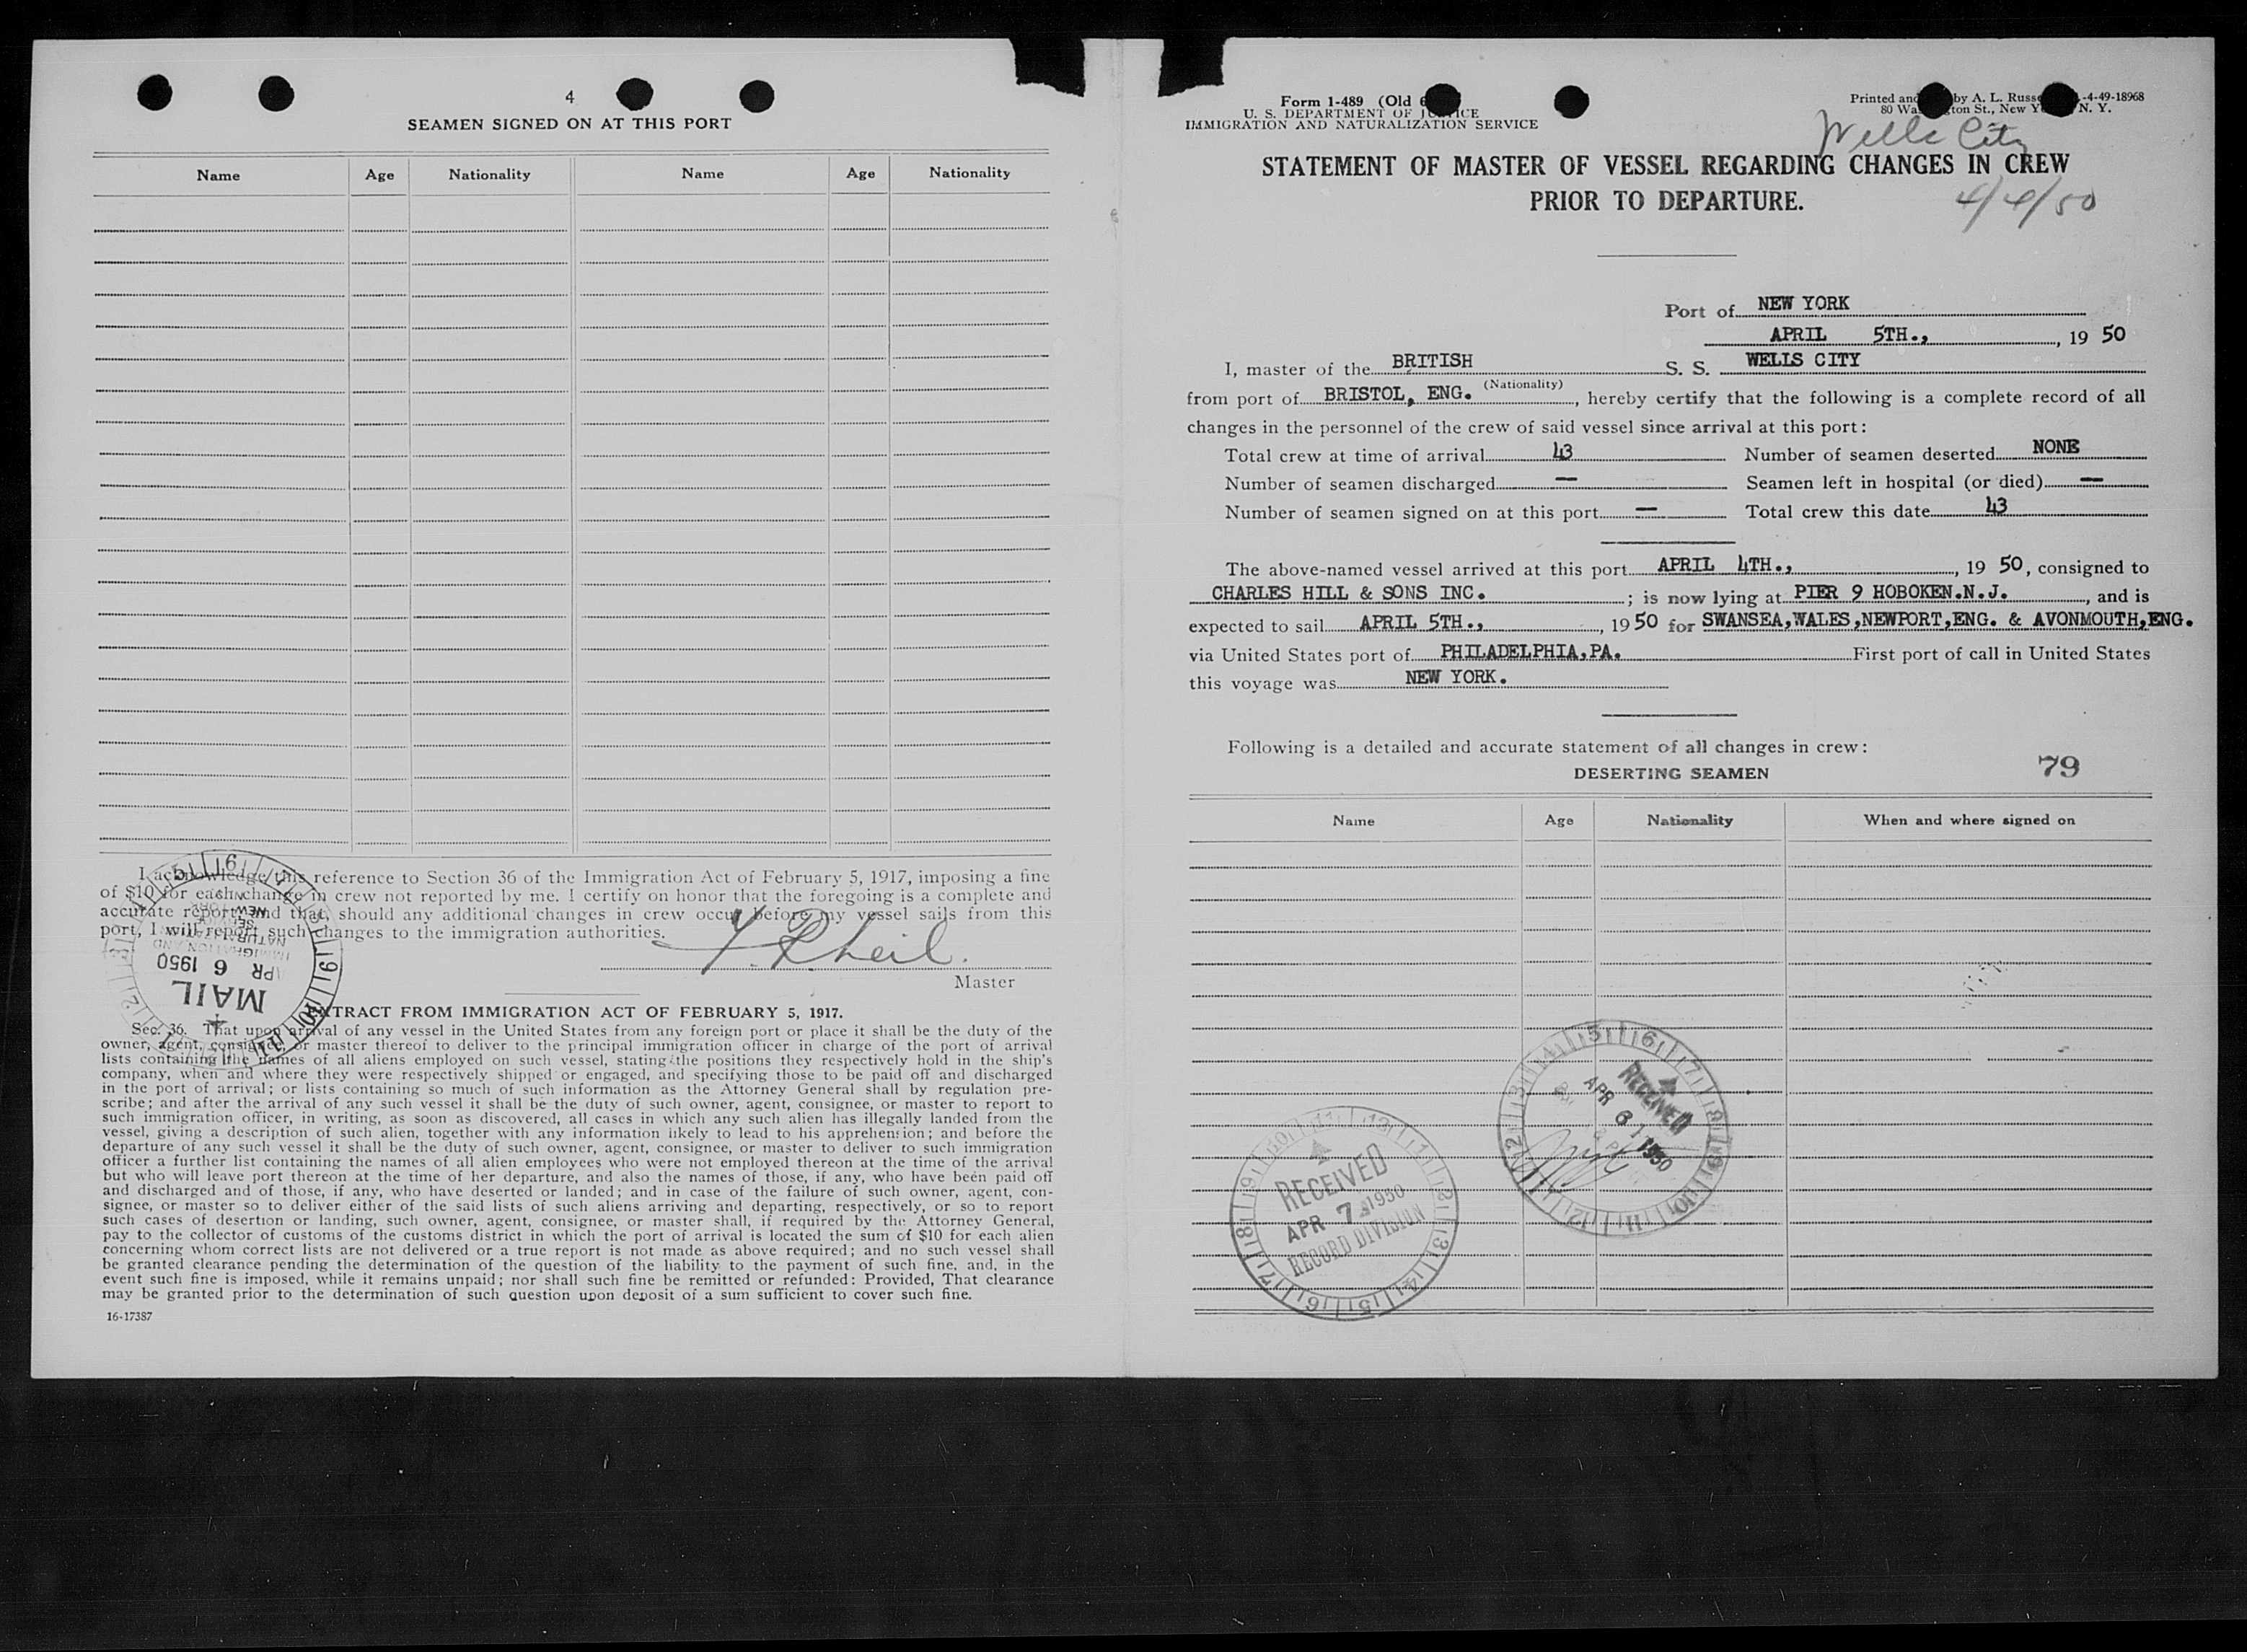 4
SEAMEN SIGNED ON AT THIS PORT
Name Age Nationality Name Age Nationality
I acknowledge this reference to Section 36 of the Immigration Act of February 5, 1917, imposing a fine
of $10 for each change in crew not reported by me. I certify on honor that the foregoing is a complete and
accurate report, and that, should any additional changes in crew occur before my vessel sails from this
port, I will report such changes to the immigration authorities.
Master
APR 6 1950
MAIL
EXTRACT FROM IMMIGRATION ACT OF FEBRUARY 5, 1917.
Sec. 36. That upon arrival of any vessel in the United States from any foreign port or place it shall be the duty of the
owner, agent, consignee, or master thereof to deliver to the principal immigration officer in charge of the port of arrival
lists containing the names of all aliens employed on such vessel, stating the positions they respectively hold in the ship's
company, when and where they were respectively shipped or engaged, and specifying those to be paid off and discharged
in the port of arrival; or lists containing so much of such information as the Attorney General shall by regulation pre-
scribe; and after the arrival of any such vessel it shall be the duty of such owner, agent, consignee, or master to report to
such immigration officer, in writing, as soon as discovered, all cases in which any such alien has illegally landed from the
vessel, giving a description of such alien, together with any information likely to lead to his apprehension; and before the
departure of any such vessel it shall be the duty of such owner, agent, consignee, or master to deliver to such immigration
officer a further list containing the names of all alien employees who were not employed thereon at the time of the arrival
but who will leave port thereon at the time of her departure, and also the names of those, if any, who have been paid off
and discharged and of those, if any, who have deserted or landed; and in case of the failure of such owner, agent, con-
signee, or master so to deliver either of the said lists of such aliens arriving and departing, respectively, or so to report
such cases of desertion or landing, such owner, agent, consignee, or master shall, if required by the Attorney General,
pay to the collector of customs of the customs district in which the port of arrival is located the sum of $10 for each alien
concerning whom correct lists are not delivered or a true report is not made as above required; and no such vessel shall
be granted clearance pending the determination of the question of the liability to the payment of such fine, and, in the
event such fine is imposed, while it remains unpaid; nor shall such fine be remitted or refunded: Provided, That clearance
may be granted prior to the determination of such question upon deposit of a sum sufficient to cover such fine.
16-17387
Form I-489 (Old
U. S. DEPARTMENT OF JUSTICE
IMMIGRATION AND NATURALIZATION SERVICE
Printed and by A. L. Russ -4-49-18968
80 Wa ton St., New Y N. Y.
Wells City
STATEMENT OF MASTER OF VESSEL REGARDING CHANGES IN CREW
PRIOR TO DEPARTURE.
4/4/50
Port of NEW YORK
APRIL 5TH., , 19 50
I, master of the BRITISH S. S. WELLS CITY
(Nationality)
from port of BRISTOL, ENG. , hereby certify that the following is a complete record of all
changes in the personnel of the crew of said vessel since arrival at this port:
Total crew at time of arrival 43 Number of seamen deserted NONE
Number of seamen discharged — Seamen left in hospital (or died) —
Number of seamen signed on at this port — Total crew this date 43
The above-named vessel arrived at this port APRIL 4TH., , 19 50, consigned to
CHARLES HILL & SONS INC. ; is now lying at PIER 9 HOBOKEN.N.J. , and is
expected to sail APRIL 5TH., , 19 50 for SWANSEA,WALES,NEWPORT,ENG. & AVONMOUTH,ENG.
via United States port of PHILADELPHIA,PA. First port of call in United States
this voyage was NEW YORK.
Following is a detailed and accurate statement of all changes in crew:
DESERTING SEAMEN 79
Name Age Nationality When and where signed on
RECEIVED
APR 6 1950
RECEIVED
APR 7 1950
RECORD DIVISION